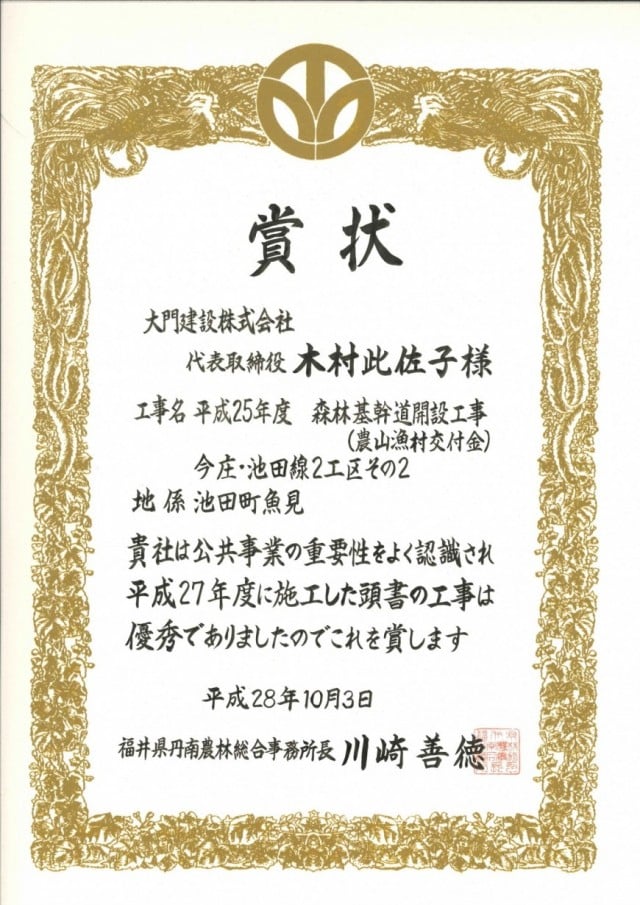 賞状
大門建設株式会社
代表取締役 木村此佐子様
工事名 平成25年度 森林基幹道開設工事
(農山漁村交付金)
今庄・池田線2工区その2
地係 池田町魚見
貴社は公共事業の重要性をよく認識され
平成27年度に施工した頭書の工事は
優秀でありましたのでこれを賞します
平成28年10月3日
福井県丹南農林総合事務所長 川崎善徳